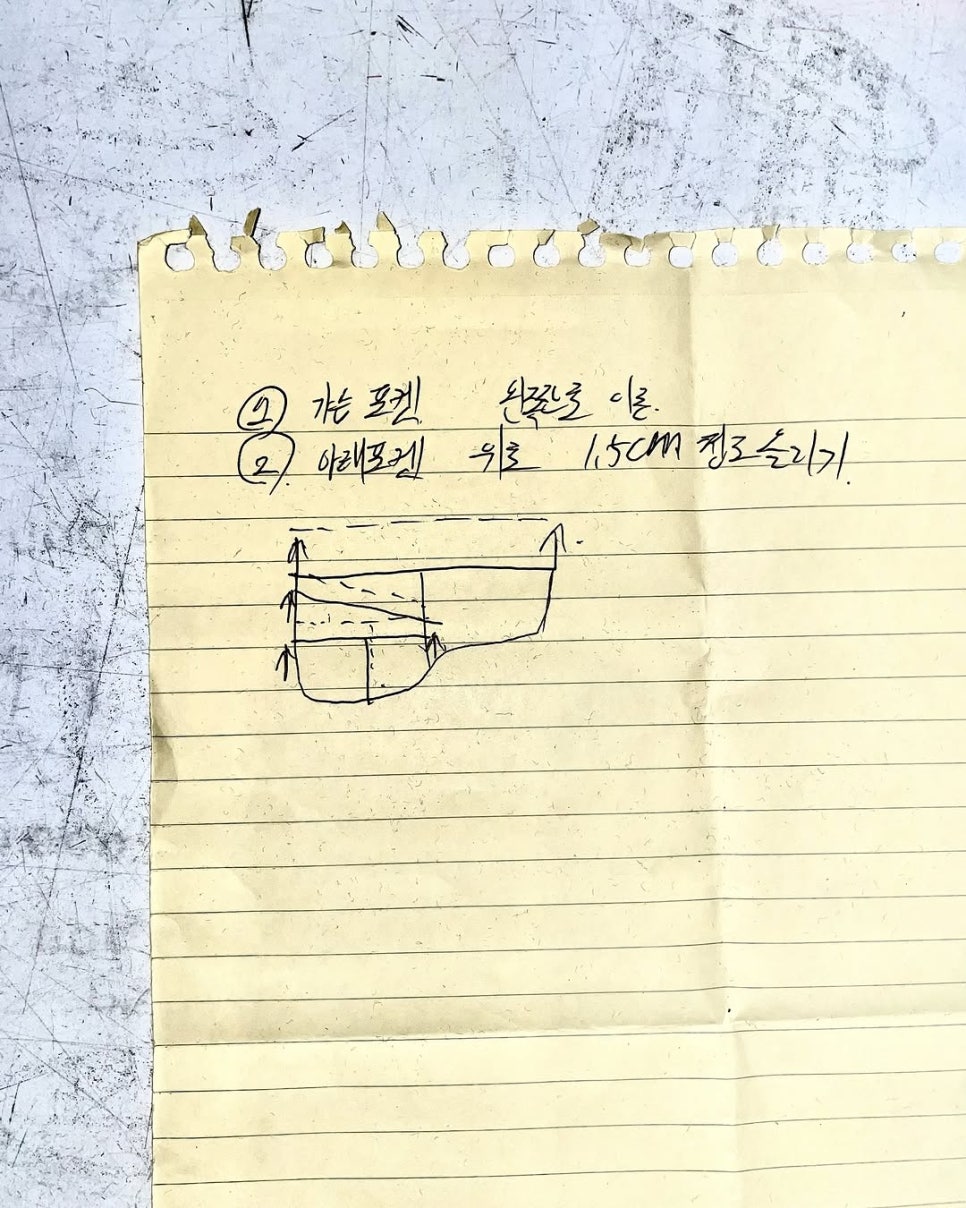 ① 가는 포켓 왼쪽으로 이른.
② 아래포켓 위로 1.5cm 정도 올리기.